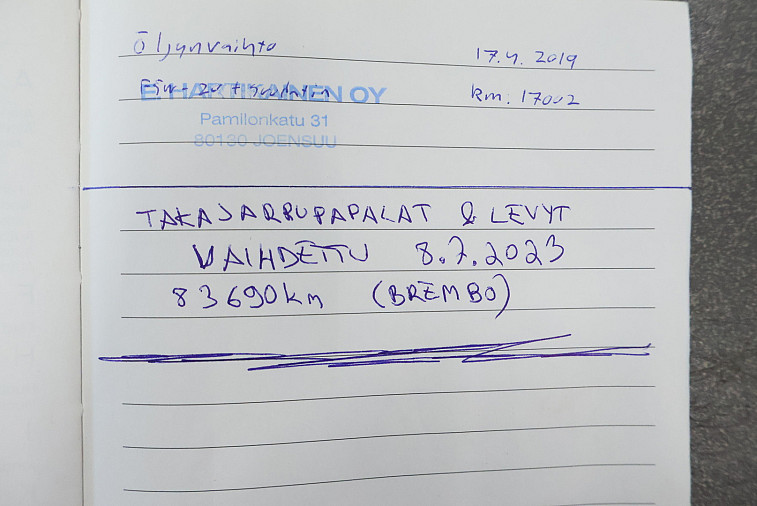 Öljynvaihto 17.4. 2019
5W-20 + suodatin km. 17002
E. HARTIKAINEN OY
Pamilonkatu 31
80130 JOENSUU
TAKAJARRUPAPALAT & LEVYT
VAIHDETTU 8.7.2023
83690km (BREMBO)